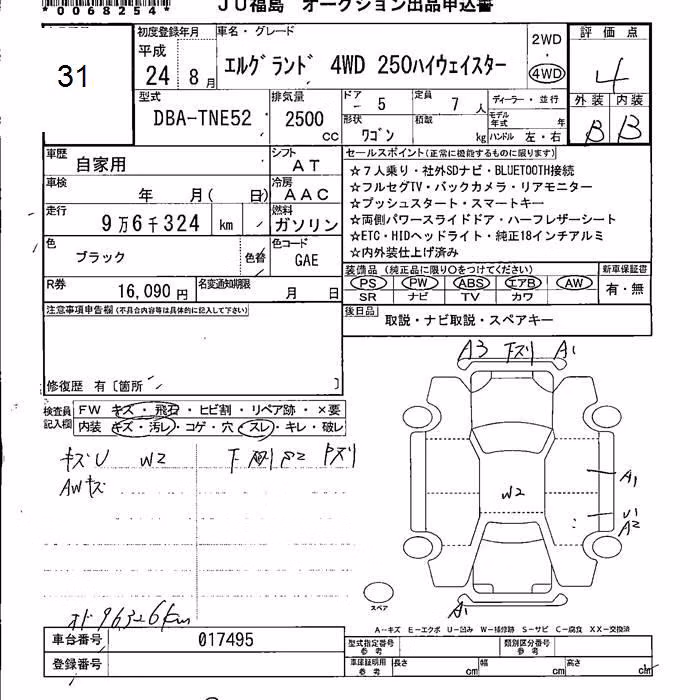 *0068254*
JU福島 オークション出品申込書
31
初度登録年月
平成
24年 8月
車名・グレード
エルグランド 4WD 250ハイウェイスター
2WD
・
4WD
評価点
4
外装 内装
B B
型式
DBA-TNE52
排気量
2500
cc
ドア
- 5
定員
7 人
ディーラー・並行
モデル年式 年
形状
ワゴン
積載
kg
ハンドル 左・右
車歴
自家用
シフト
AT
車検
年 月( 日)
冷房
AAC
走行
9万6千324 km
燃料
ガソリン
色
ブラック
色替
色コード
GAE
R券
16,090円
名変通知期限
月 日
セールスポイント(正常に機能するものに限ります)
☆7人乗り・社外SDナビ・BLUETOOTH接続
☆フルセグTV・バックカメラ・リアモニター
☆プッシュスタート・スマートキー
☆両側パワースライドドア・ハーフレザーシート
☆ETC・HIDヘッドライト・純正18インチアルミ
☆内外装仕上げ済み
装備品(純正品に限り○をつけてください)
新車保証書
PS PW ABS エアB AW
SR ナビ TV カワ
有・無
後日品
取説・ナビ取説・スペアキー
注意事項申告欄(不具合内容等は具体的に記入して下さい)
修復歴 有〔箇所 〕
検査員
記入欄
FW キズ・飛石・ヒビ割・リペア跡・×要
内装 キズ・汚レ・コゲ・穴・スレ・キレ・破レ
キズU W2
AWキズ
A3 下スリ A1
W2
A1
U1
A2
A1
スペア
A-キズ E-エクボ U-凹み W-補修跡 S-サビ C-腐食 XX-交換済
オド 96326km
車台番号
017495
登録番号
型式指定番号
参考
類別区分番号
参考
車庫証明用
参考
長さ cm
幅 cm
高さ cm